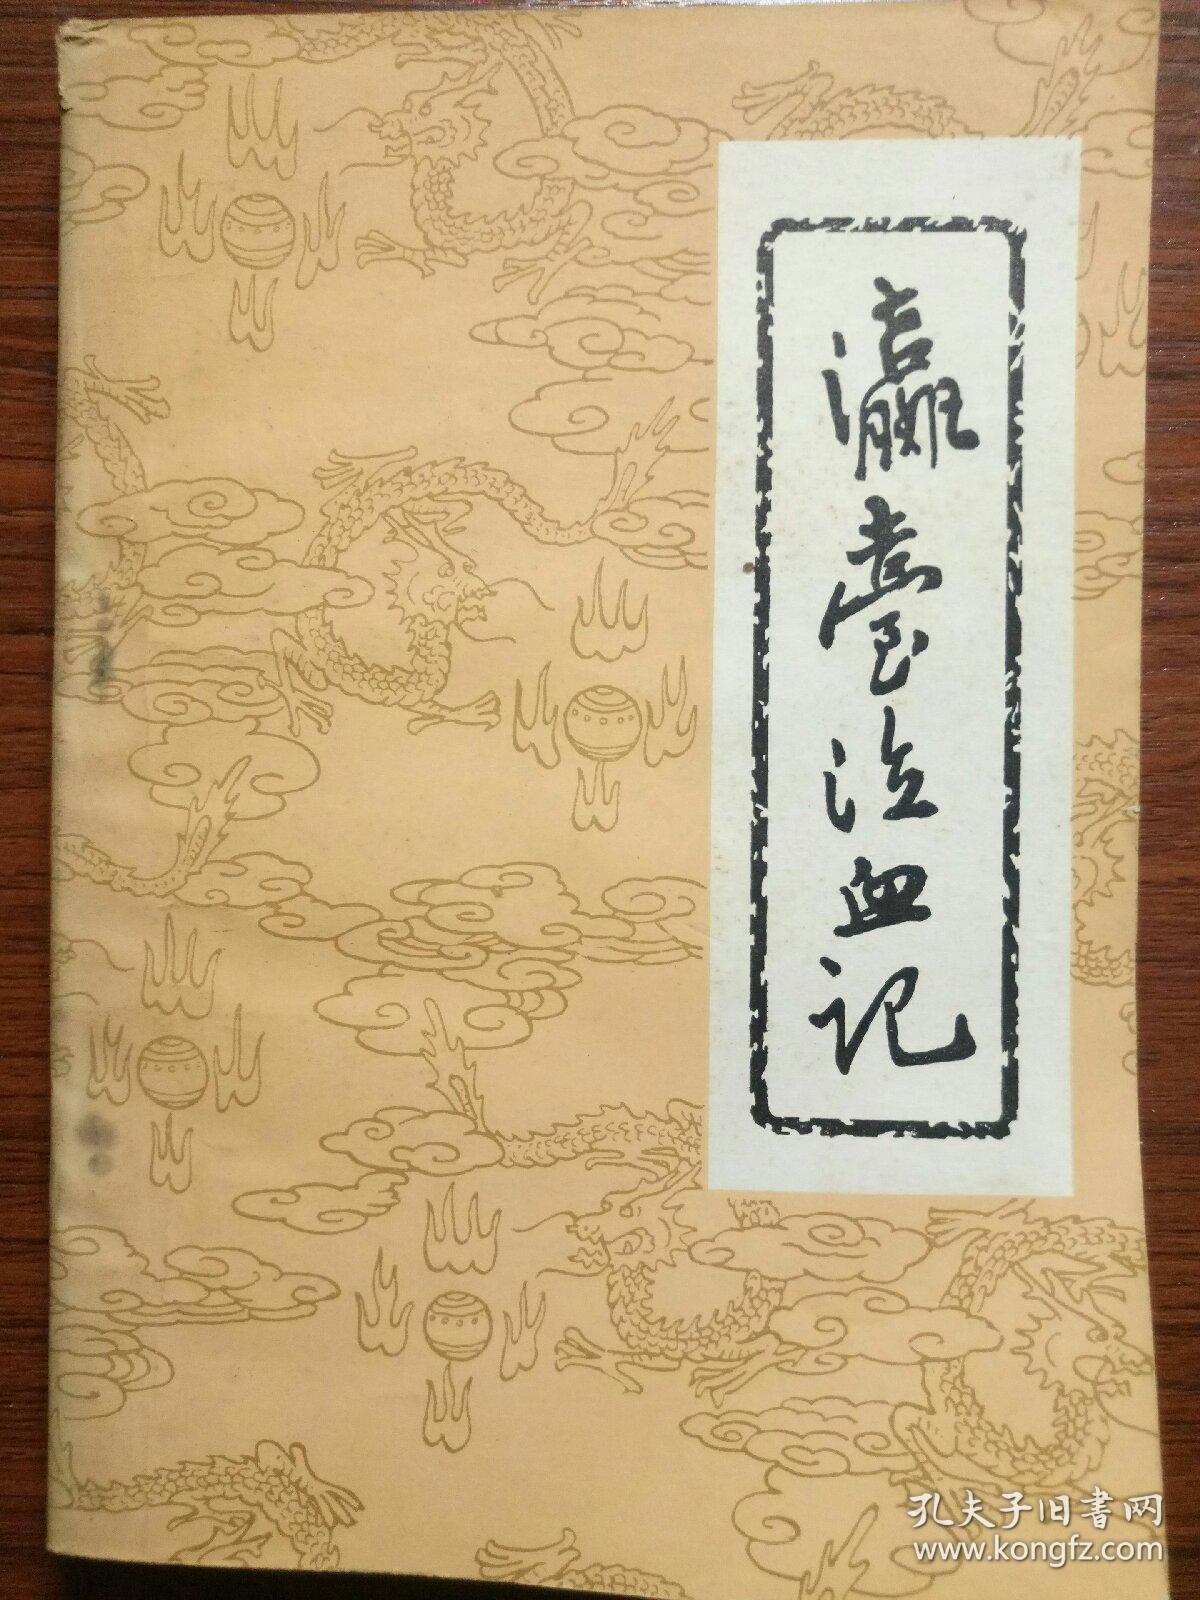 瀛臺泣血记
孔夫子旧書网
www.kongfz.com